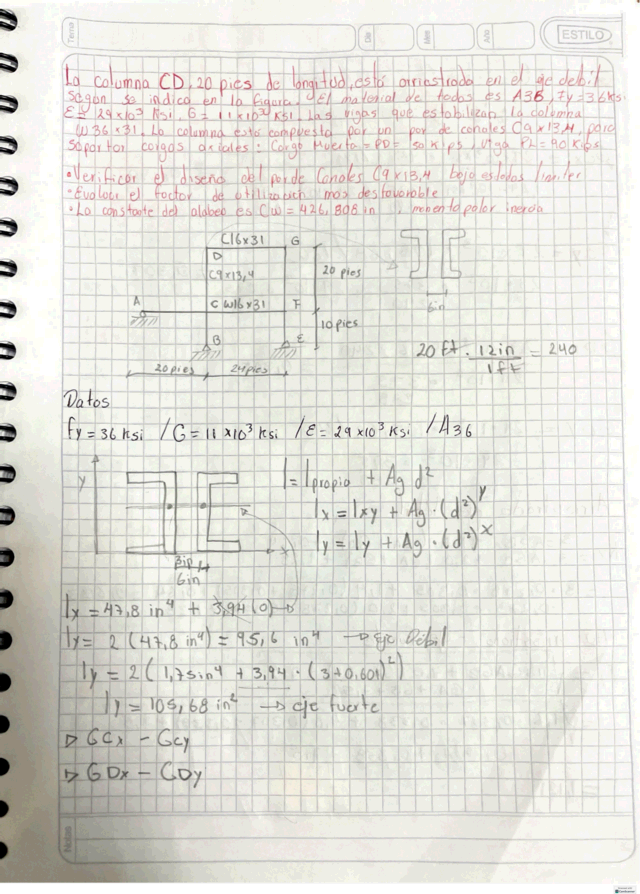 Tema
Día
Mes
Año
ESTILO
La columna CD, 20 pies de longitud, está arriostrada en el eje debil
según se indica en la figura. El material de todas es A36, Fy = 36 Ksi.
E = 29x10³ Ksi, G = 11x10³ Ksi. Las vigas que estabilizan la columna
W36x31. La columna está compuesta por un par de canales C9x13,4, para
soportar cargas axiales: Carga Muerta = PD = 50 Kips, viga PL = 90 Kips
• Verificar el diseño del par de Canales C9x13,4 bajo estados limites
• Evaluar el factor de utilización mas desfavorable
• La constante del alabeo es Cw = 426,808 in , momento polar inercia
C16x31 G
D
C9x13,4
20 pies
6in
A
C W16x31 F
10 pies
B
E
20 pies 24 pies
20 ft . 12in / 1ft = 240
Datos
Fy = 36 Ksi / G = 11x10³ Ksi / E = 29x10³ Ksi / A36
Y
x
3in
6in
I = Ipropia + Ag d²
Ix = Ixy + Ag · (d²)^y
Iy = Iy + Ag · (d²)^x
Ix = 47,8 in⁴ + 3,94 (0)
Ix = 2 (47,8 in⁴) = 95,6 in⁴ → Eje Débil
Iy = 2 (1,75in⁴ + 3,94 · (3+0,601)²)
Iy = 105,68 in² → eje fuerte
▷ GCx - Gcy
▷ GDx - GDy
Notas